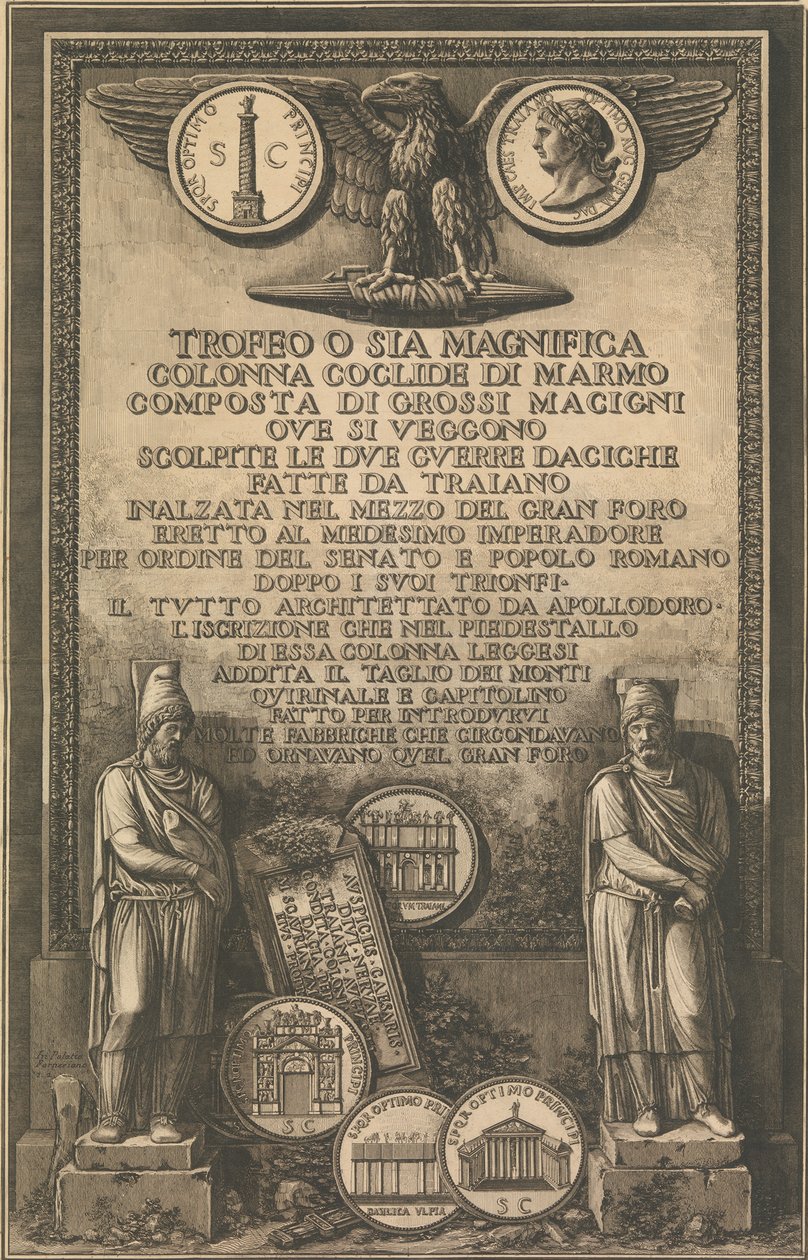 SPQR OPTIMO PRINCIPI
S C
IMP CAES TRAIANO OPTIMO AUG GERM DAC
TROFEO O SIA MAGNIFICA
COLONNA COCLIDE DI MARMO
COMPOSTA DI GROSSI MACIGNI
OVE SI VEGGONO
SCOLPITE LE DVE GVERRE DACICHE
FATTE DA TRAIANO
INALZATA NEL MEZZO DEL GRAN FORO
ERETTO AL MEDESIMO IMPERADORE
PER ORDINE DEL SENATO E POPOLO ROMANO
DOPPO I SVOI TRIONFI·
IL TVTTO ARCHITETTATO DA APOLLODORO·
L'ISCRIZIONE CHE NEL PIEDESTALLO
DI ESSA COLONNA LEGGESI
ADDITA IL TAGLIO DEI MONTI
QVIRINALE E CAPITOLINO
FATTO PER INTRODVRVI
MOLTE FABBRICHE CHE CIRCONDAVANO
ED ORNAVANO QVEL GRAN FORO
RVM TRAIANI
AVSPICIIS · CAESARIS
DIVI · NERVAE
TRAIANI · AVG
CONDITA · COLON
DACIA · PER
M SCAVRIANVM
EVS · PRO
In Palatio
Farnesiano
OPTIMO PRINCIPI
S C
SPQR OPTIMO PRI
BASILICA VLPIA
SPQR OPTIMO PRINCIPI
S C